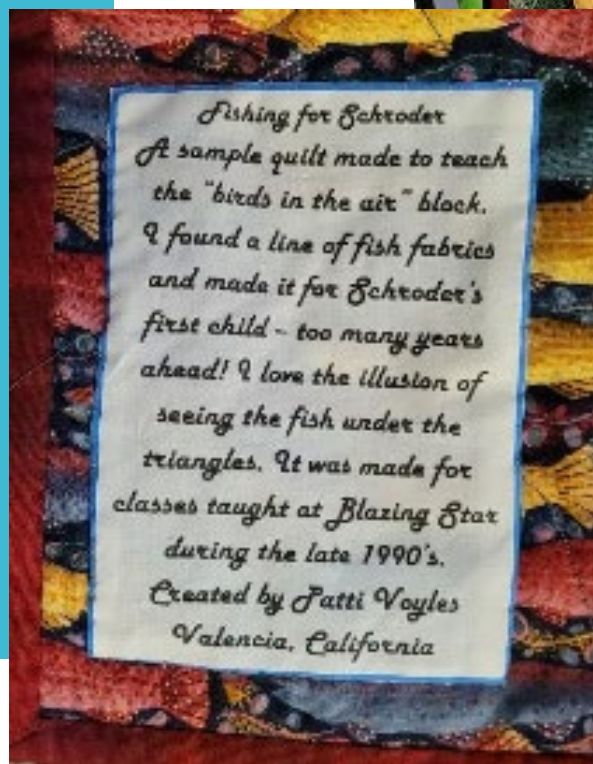 Fishing for Schroder
A sample quilt made to teach
the "birds in the air" block.
I found a line of fish fabrics
and made it for Schroder's
first child - too many years
ahead! I love the illusion of
seeing the fish under the
triangles. It was made for
classes taught at Blazing Star
during the late 1990's.
Created by Patti Voyles
Valencia, California